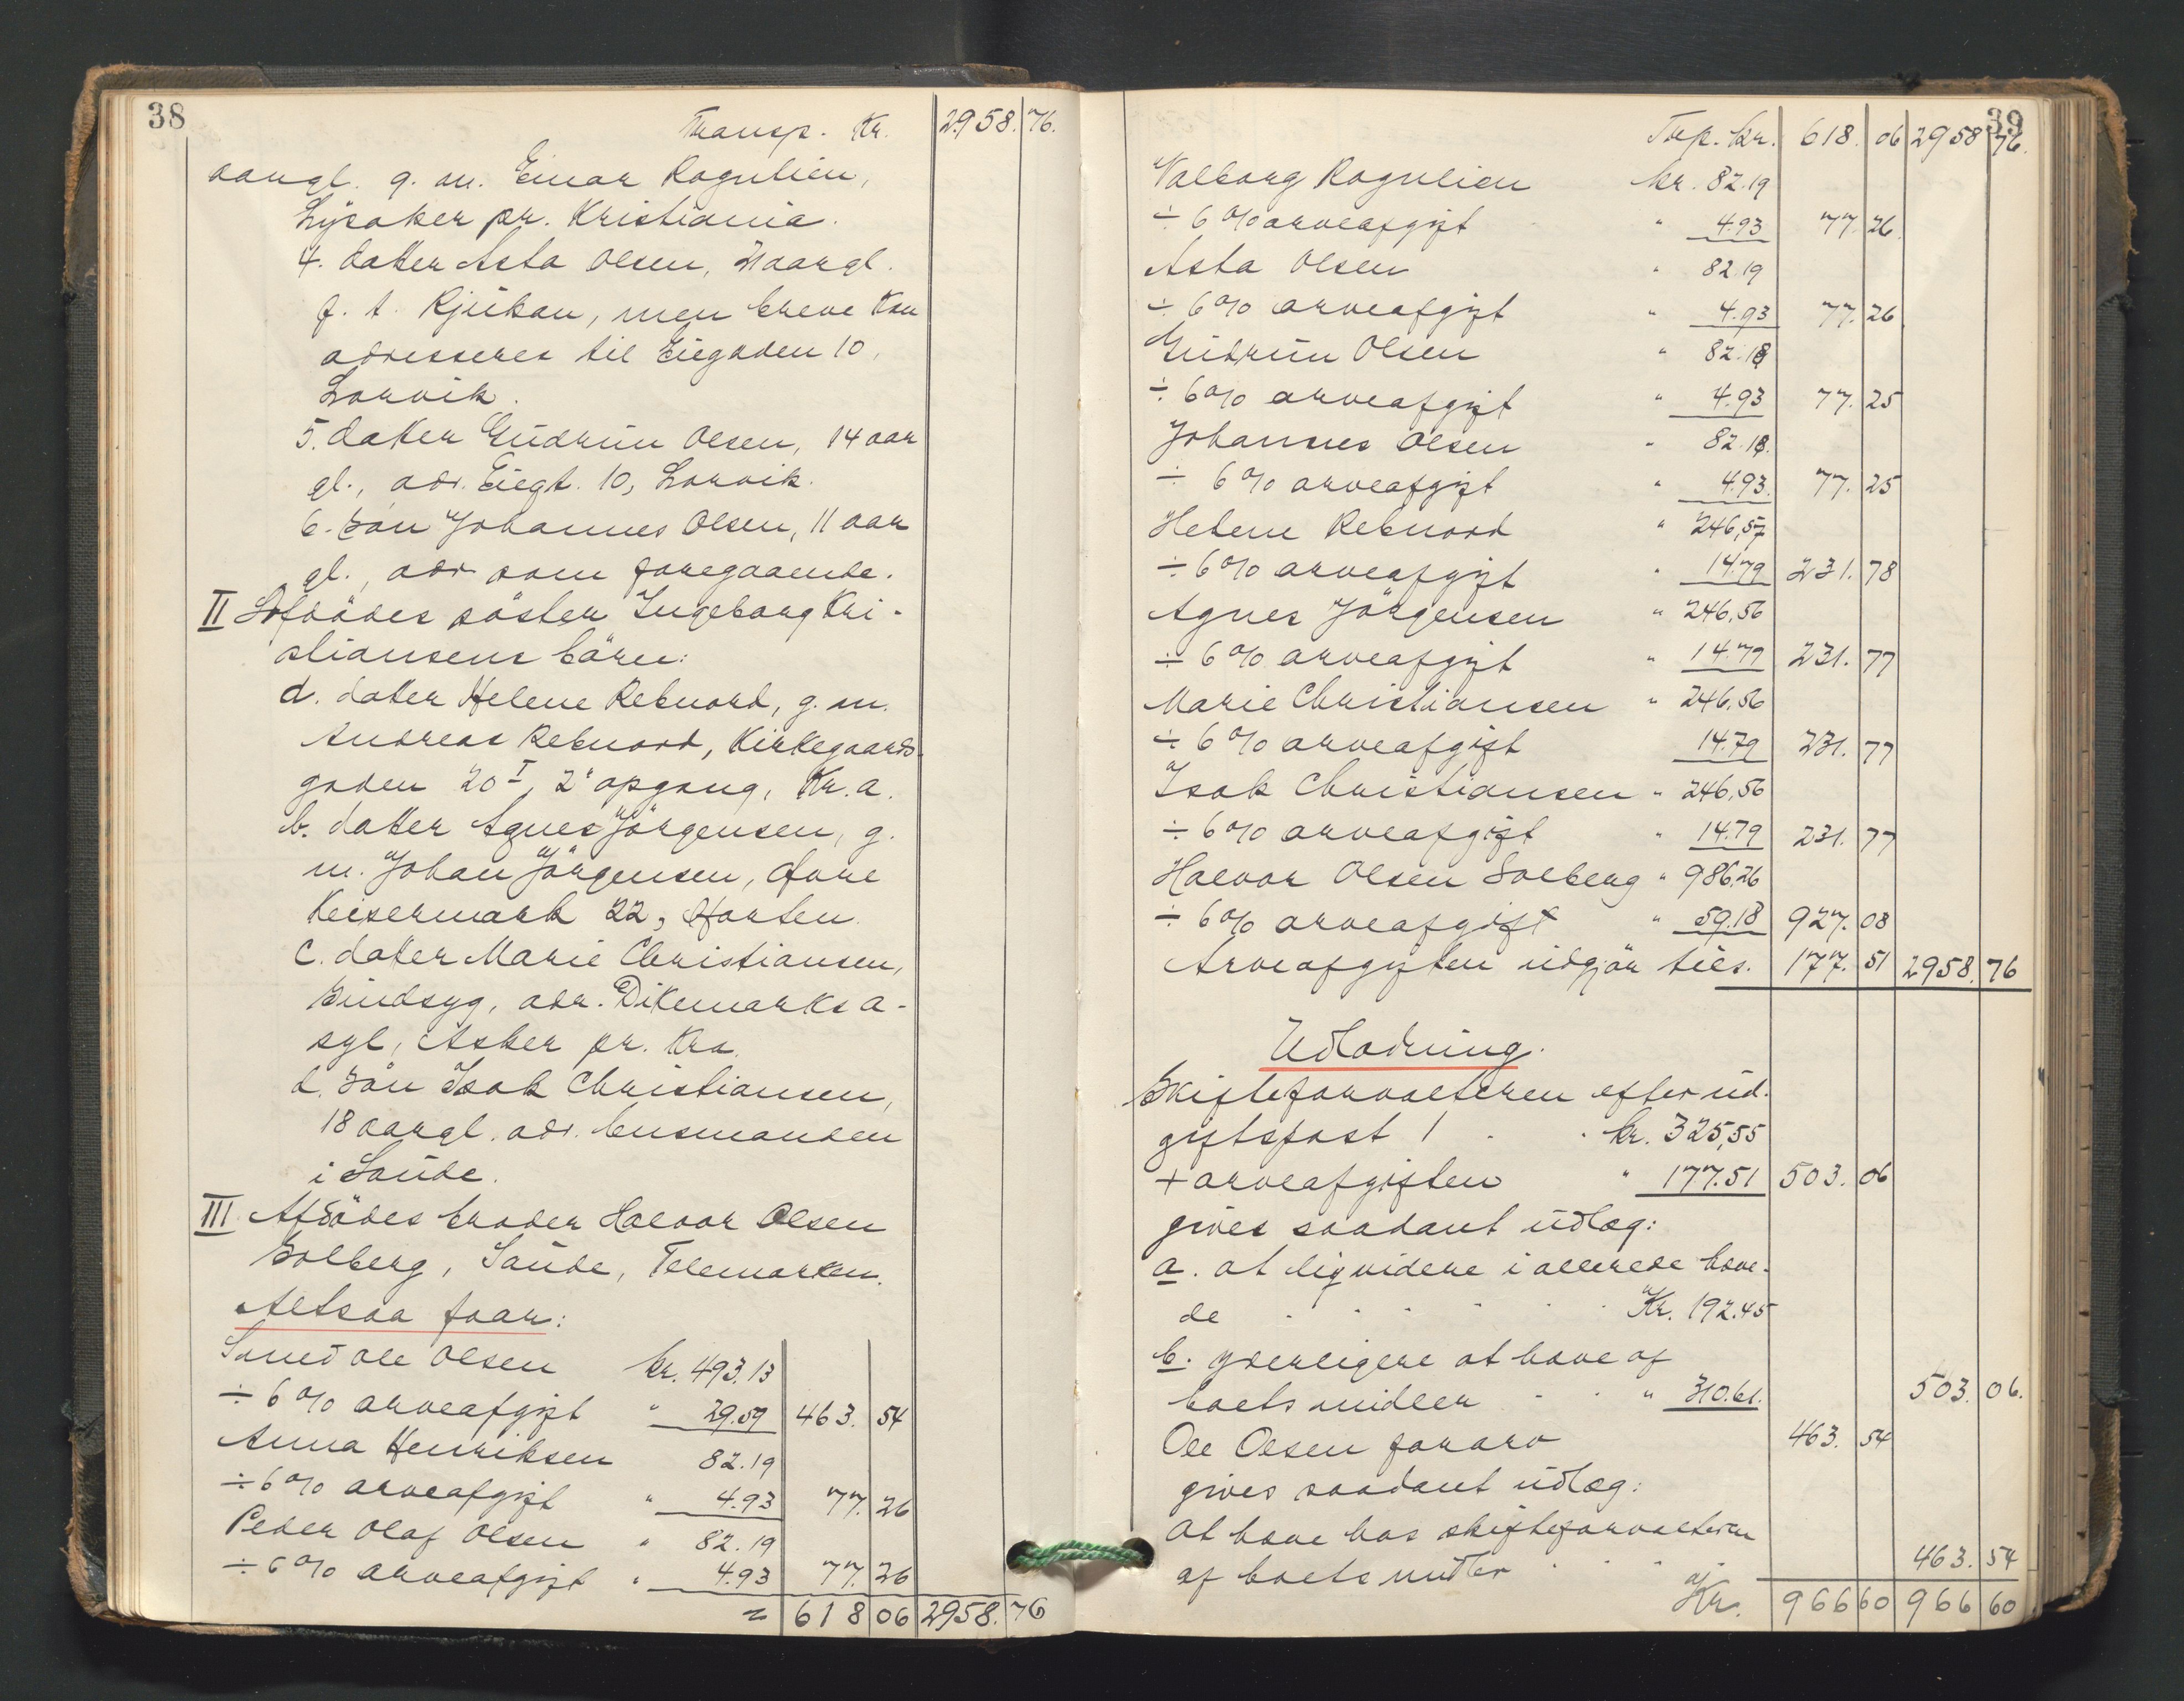 38
Transp. Kr. 2958.76.
aargl. g. m. Einar Rognlien,
Lysaker pr. Kristiania.
4. datter Asta Olsen, 21 aargl.
f. t. Rjukan, men breve kan
adresseres til Eiegaden 10,
Larvik.
5. datter Gudrun Olsen, 14 aar
gl., adr. Eiegt. 10, Larvik.
6. sön Johannes Olsen, 11 aar
gl., adr. som foregaaende.
II Afdödes söster Ingeborg Kri-
stiansens börn:
a. datter Helene Rebnord, g. m.
Andreas Rebnord, Kirkegaards-
gaden 20 I, 2' opgang, Kr.a.
b. datter Agnes Jörgensen, g.
m. Johan Jörgensen, Övre
Keisermark 22, Horten.
c. datter Marie Christiansen,
sindsyg, adr. Dikemarks a-
syl, Asker pr. Kra.
d. sön Isak Christiansen,
18 aargl. adr. lensmanden
i Saude.
III Afdödes broder Halvor Olsen
Solberg, Saude, Telemarken.
Altsaa faar:
Ole Olsen kr. 493.13
÷ 6 % arveafgift " 29.59 463.54
Anna Henriksen 82.19
÷ 6 % arveafgift " 4.93 77.26
Peder Olaf Olsen " 82.19
÷ 6 % arveafgift " 4.93 77.26
618 06 2958.76
39
Trp. kr. 618.06 2958 76.
Valborg Rognlien kr. 82.19
÷ 6 % arveafgift " 4.93 77.26
Asta Olsen " 82.19
÷ 6 % arveafgift " 4.93 77.26
Gudrun Olsen " 82.18
÷ 6 % arveafgift " 4.93 77.25
Johannes Olsen " 82.18.
÷ 6 % arveafgift " 4.93. 77.25
Helene Rebnord " 246,57
÷ 6 % arveafgift " 14.79 231.78
Agnes Jörgensen " 246,56
÷ 6 % arveafgift " 14.79 231.77
Marie Christiansen " 246,56
÷ 6 % arveafgift 14.79 231.77
Isak Christiansen " 246,56
÷ 6 % arveafgift " 14.79 231.77
Halvor Olsen Solberg " 986,26
÷ 6 % arveafgift " 59.18 927.08
Arveafgiften udgjör tils. 177.51 2958.76
Udlodning.
Skifteforvalteren efter ud-
giftspost 1 kr. 325,55
+ arveafgiften " 177.51 503.06
gives saadant udlæg:
a. at liqvidere i allerede have-
de Kr. 192.45
b. yderligere at have af
boets midler " 310.61. 503.06.
Ole Olsen for arv 463.54
gives saadant udlæg:
At have hos skifteforvalteren
af boets midler 463.54
Kr. 966 60 966 60